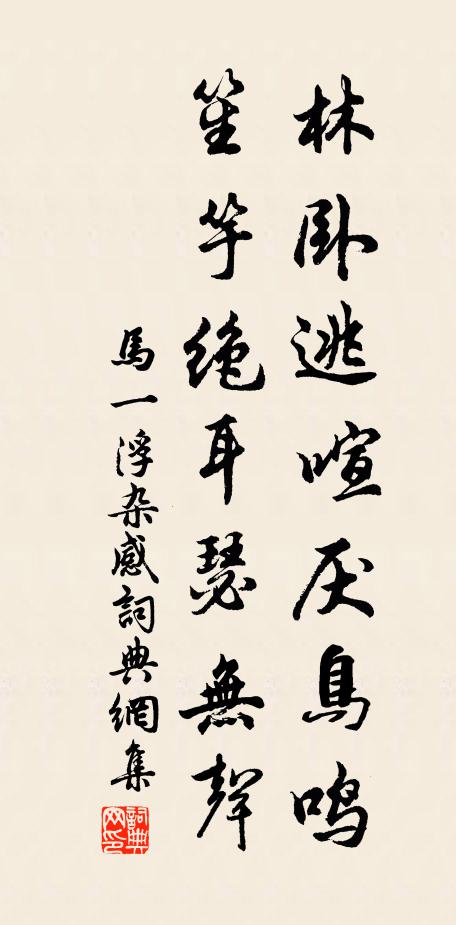 林卧逃喧厌鳥鸣
笙竽绝耳瑟無聲
馬一浮杂感詞典網集
詞典网印